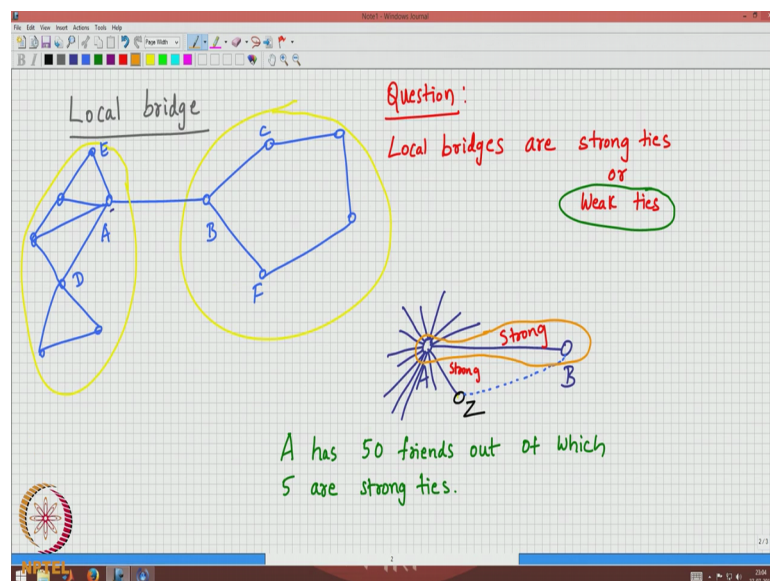 Note1 - Windows Journal
File Edit View Insert Actions Tools Help
Page Width
B I
Local bridge
E
A
D
B
C
F
Question:
Local bridges are strong ties
or
Weak ties
Strong
Strong
A
B
Z
A has 50 friends out of which
5 are strong ties.
NPTEL
2
2/3
23:04